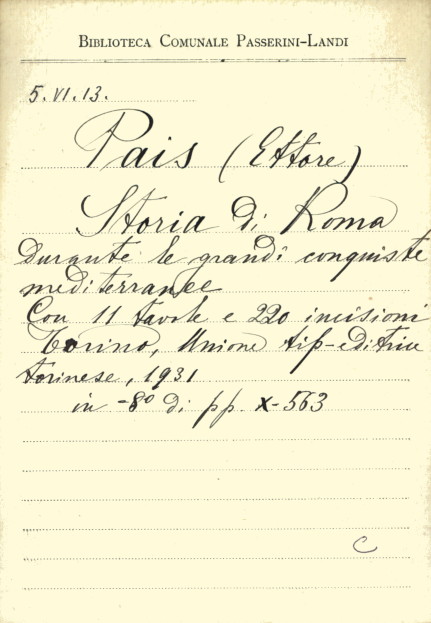 BIBLIOTECA COMUNALE PASSERINI-LANDI
5.VI.13.
Pais (Ettore)
Storia di Roma
Durante le grandi conquiste
mediterranee
Con 11 tavole e 220 incisioni
Torino, Unione tip-editrice
torinese, 1931
in -8° di pp. X-563
C